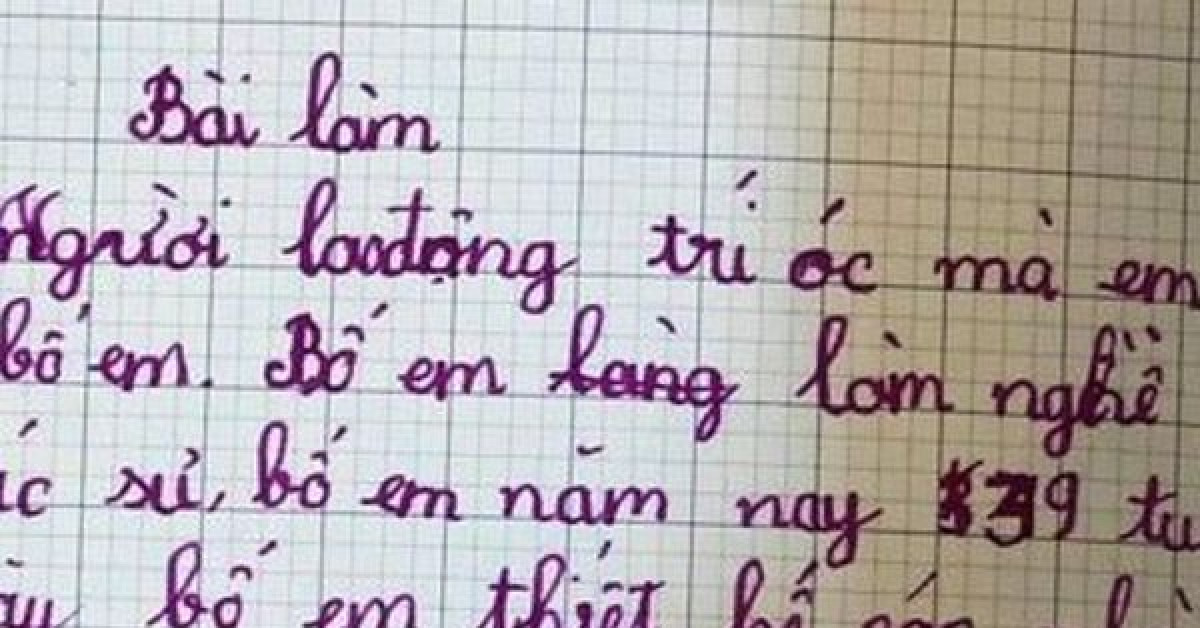 Bài làm
Người laođộng trí óc mà em
bố em. Bố em làng làm nghề
sư, bố em năm nay 39
bố em thiết kế